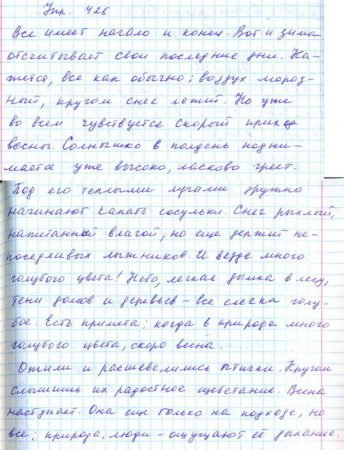 Упр. 426
Все имеет начало и конец. Вот и зима
отсчитывает свои последние дни. Ка-
жется, все как обычно: воздух мороз-
ный, кругом снег лежит. Но уже
во всем чувствуется скорый приход
весны. Солнышко в полдень подни-
мается уже высоко, ласково греет.
Под его теплыми лучами дружно
начинают капать сосульки. Снег рыхлый,
напитанный влагой, но еще держит не-
поседливых лыжников. И везде много
голубого цвета! Небо, легкая дымка в лесу,
тени домов и деревьев - все слегка голу-
бое. Есть примета: когда в природе много
голубого цвета, скоро весна.
Ожили и расшевелились птички. Кругом
слышишь их радостное щебетание. Весна
наступает. Она еще только на подходе, но
все: природа, люди - ощущают её дыхание.